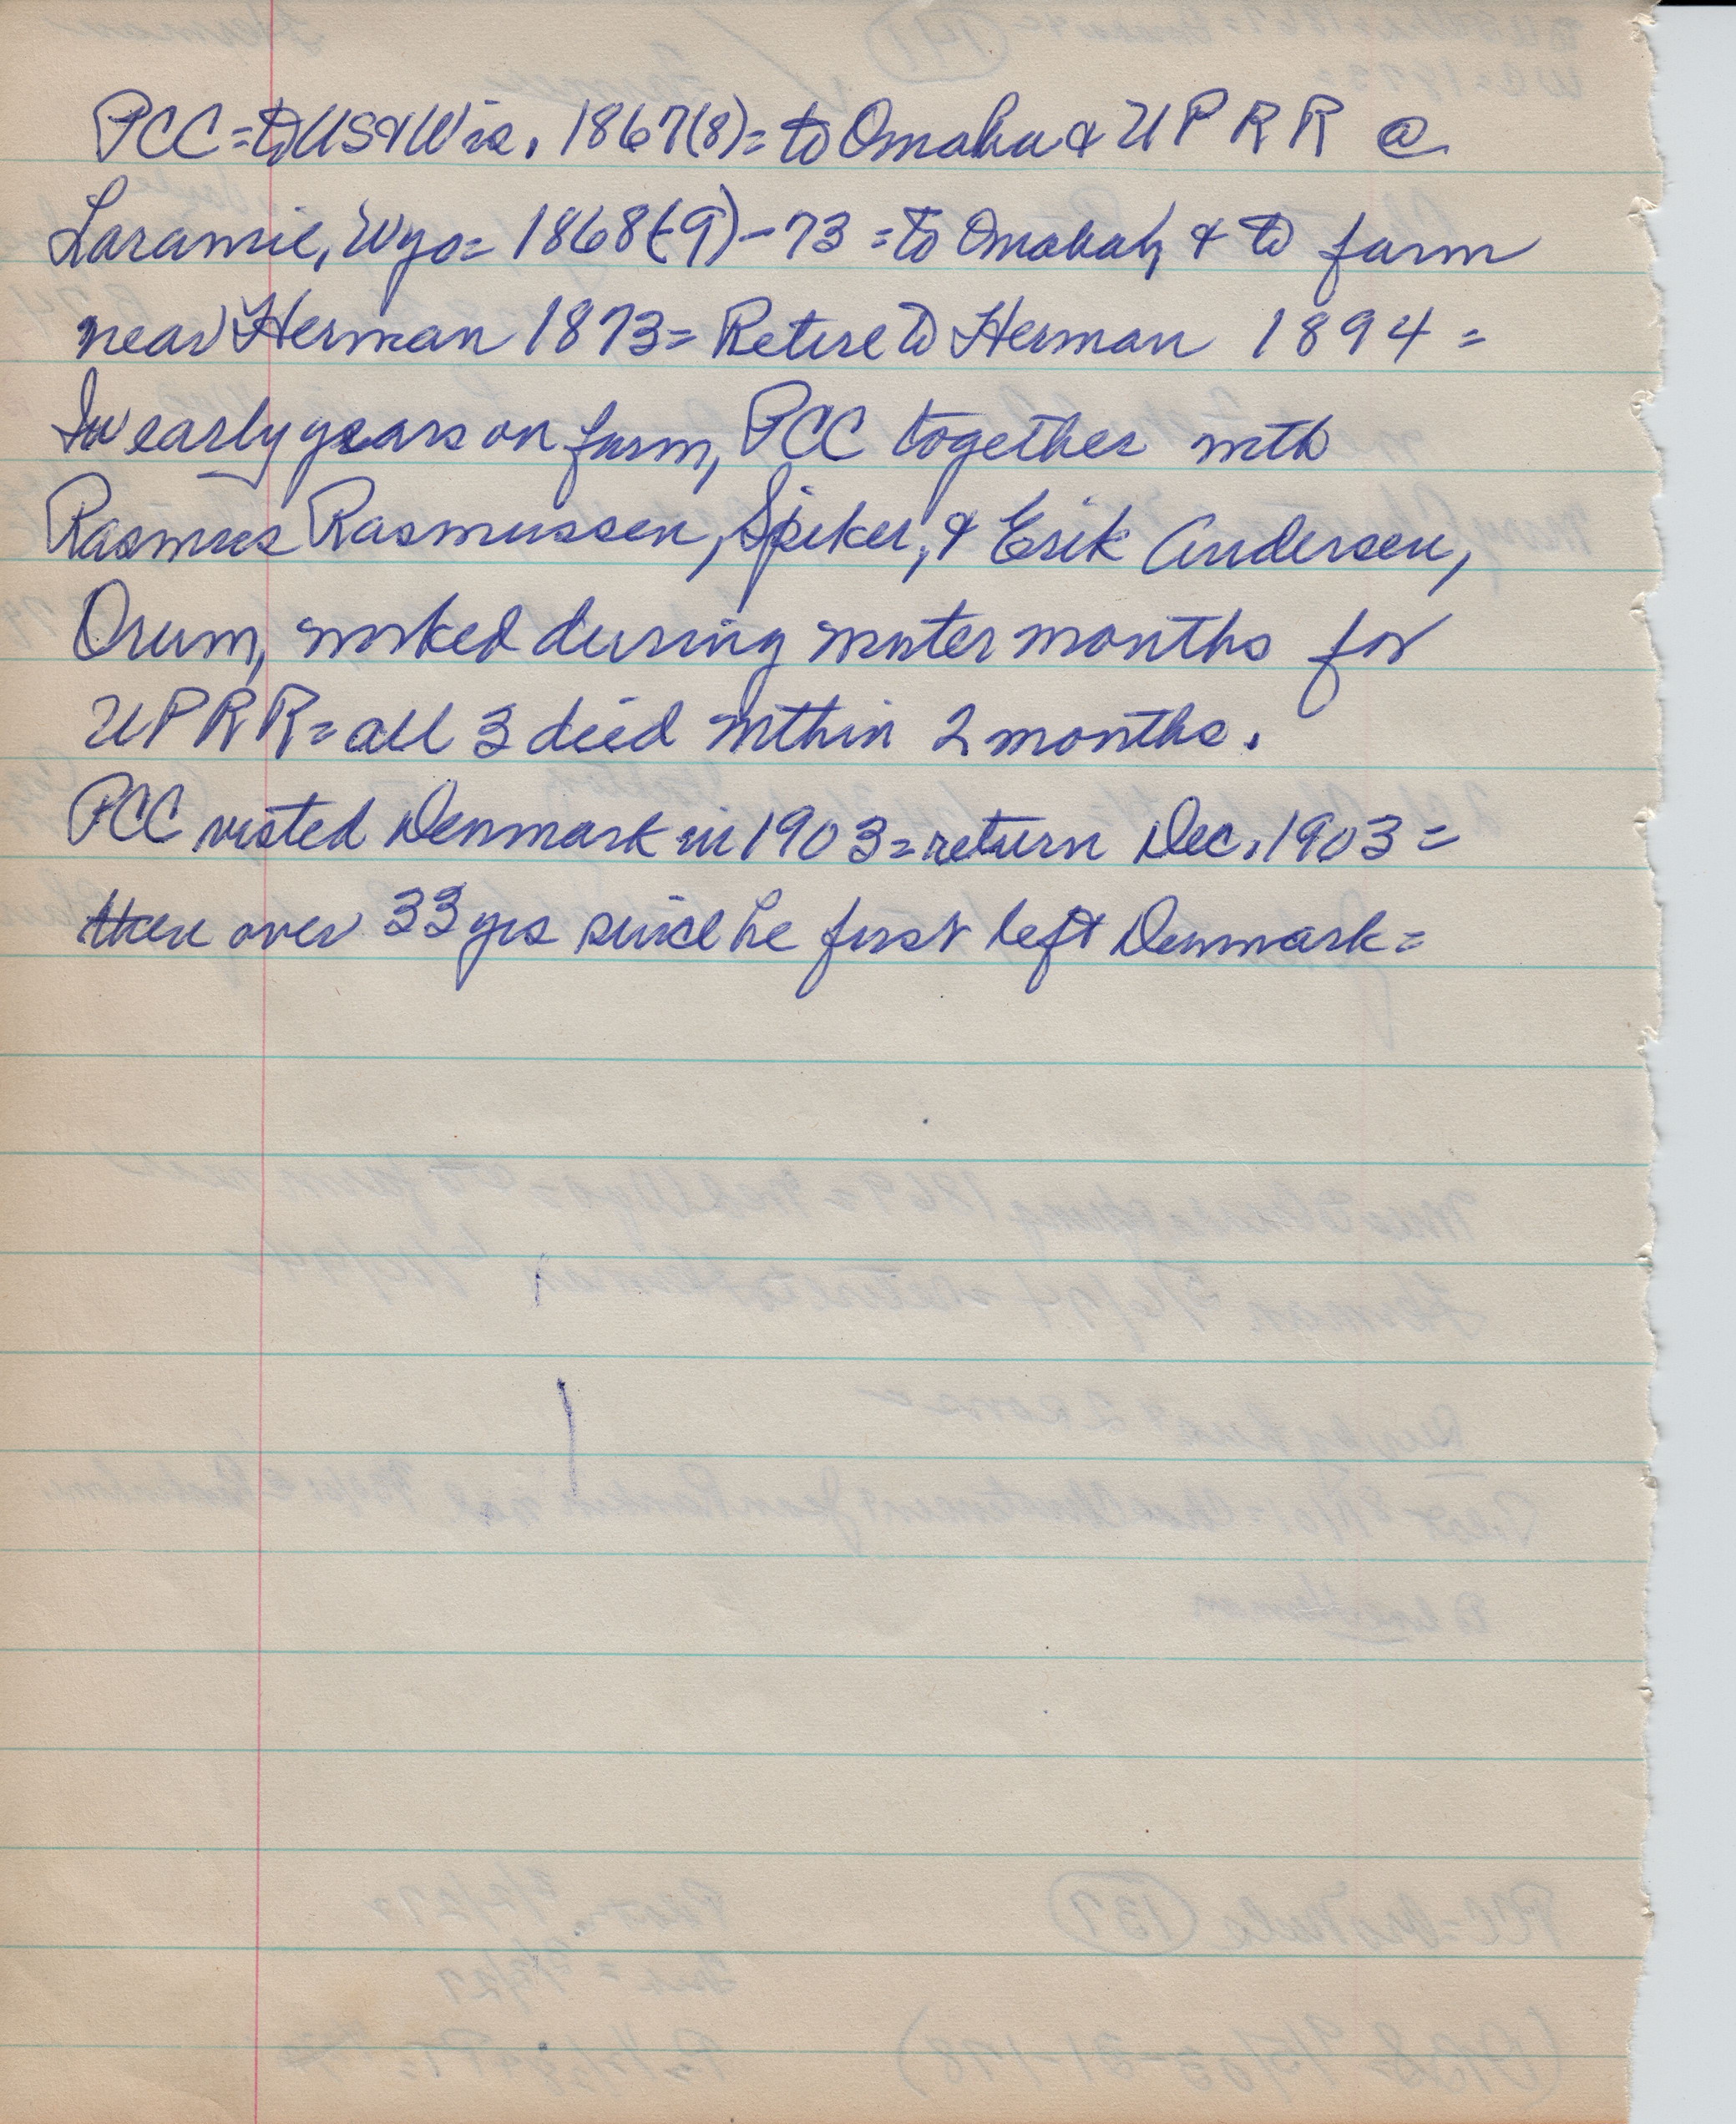 PCC = to US & Wis. 1867(8) = to Omaha & UPRR @
Laramie, Wyo = 1868(-9) - 73 = to Omaha, & to farm
near Herman 1873 = Retire to Herman 1894 =
In early years on farm, PCC together with
Rasmus Rasmussen, Spiker, & Erik Andersen,
Orum, worked during winter months for
UPRR = all 3 died within 2 months.
PCC visted Denmark in 1903 = return Dec. 1903 =
then over 33 yrs since he first left Denmark =